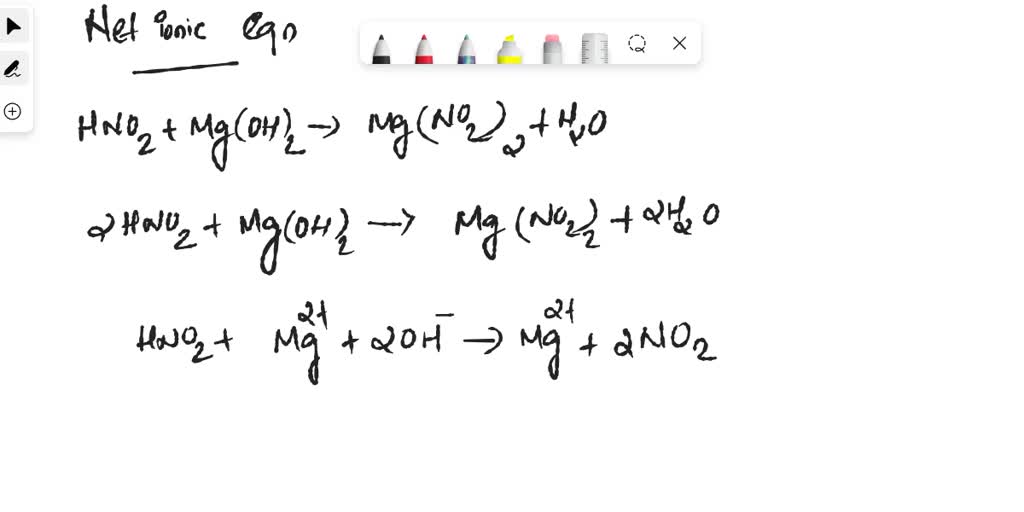 Net ionic eqn
HNO2 + Mg(OH)2 → Mg(NO2)2 + H2O
2HNO2 + Mg(OH)2 → Mg(NO2)2 + 2H2O
HNO2 + Mg2+ + 2OH- → Mg2+ + 2NO2